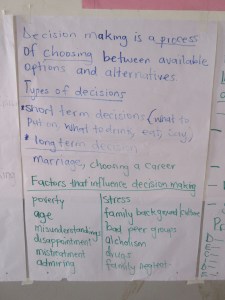 Decision making is a process
of choosing between available
options and alternatives
Types of decisions
*Short term decisions (what to
put on, what to drink, eat, buy,
* long term decision
marriage, choosing a career
Factors that influence decision making
poverty
age
misunderstandings
disappointment
mistreatment
admiring
stress
family background/culture
bad peer groups
alcholism
drugs
family neglect